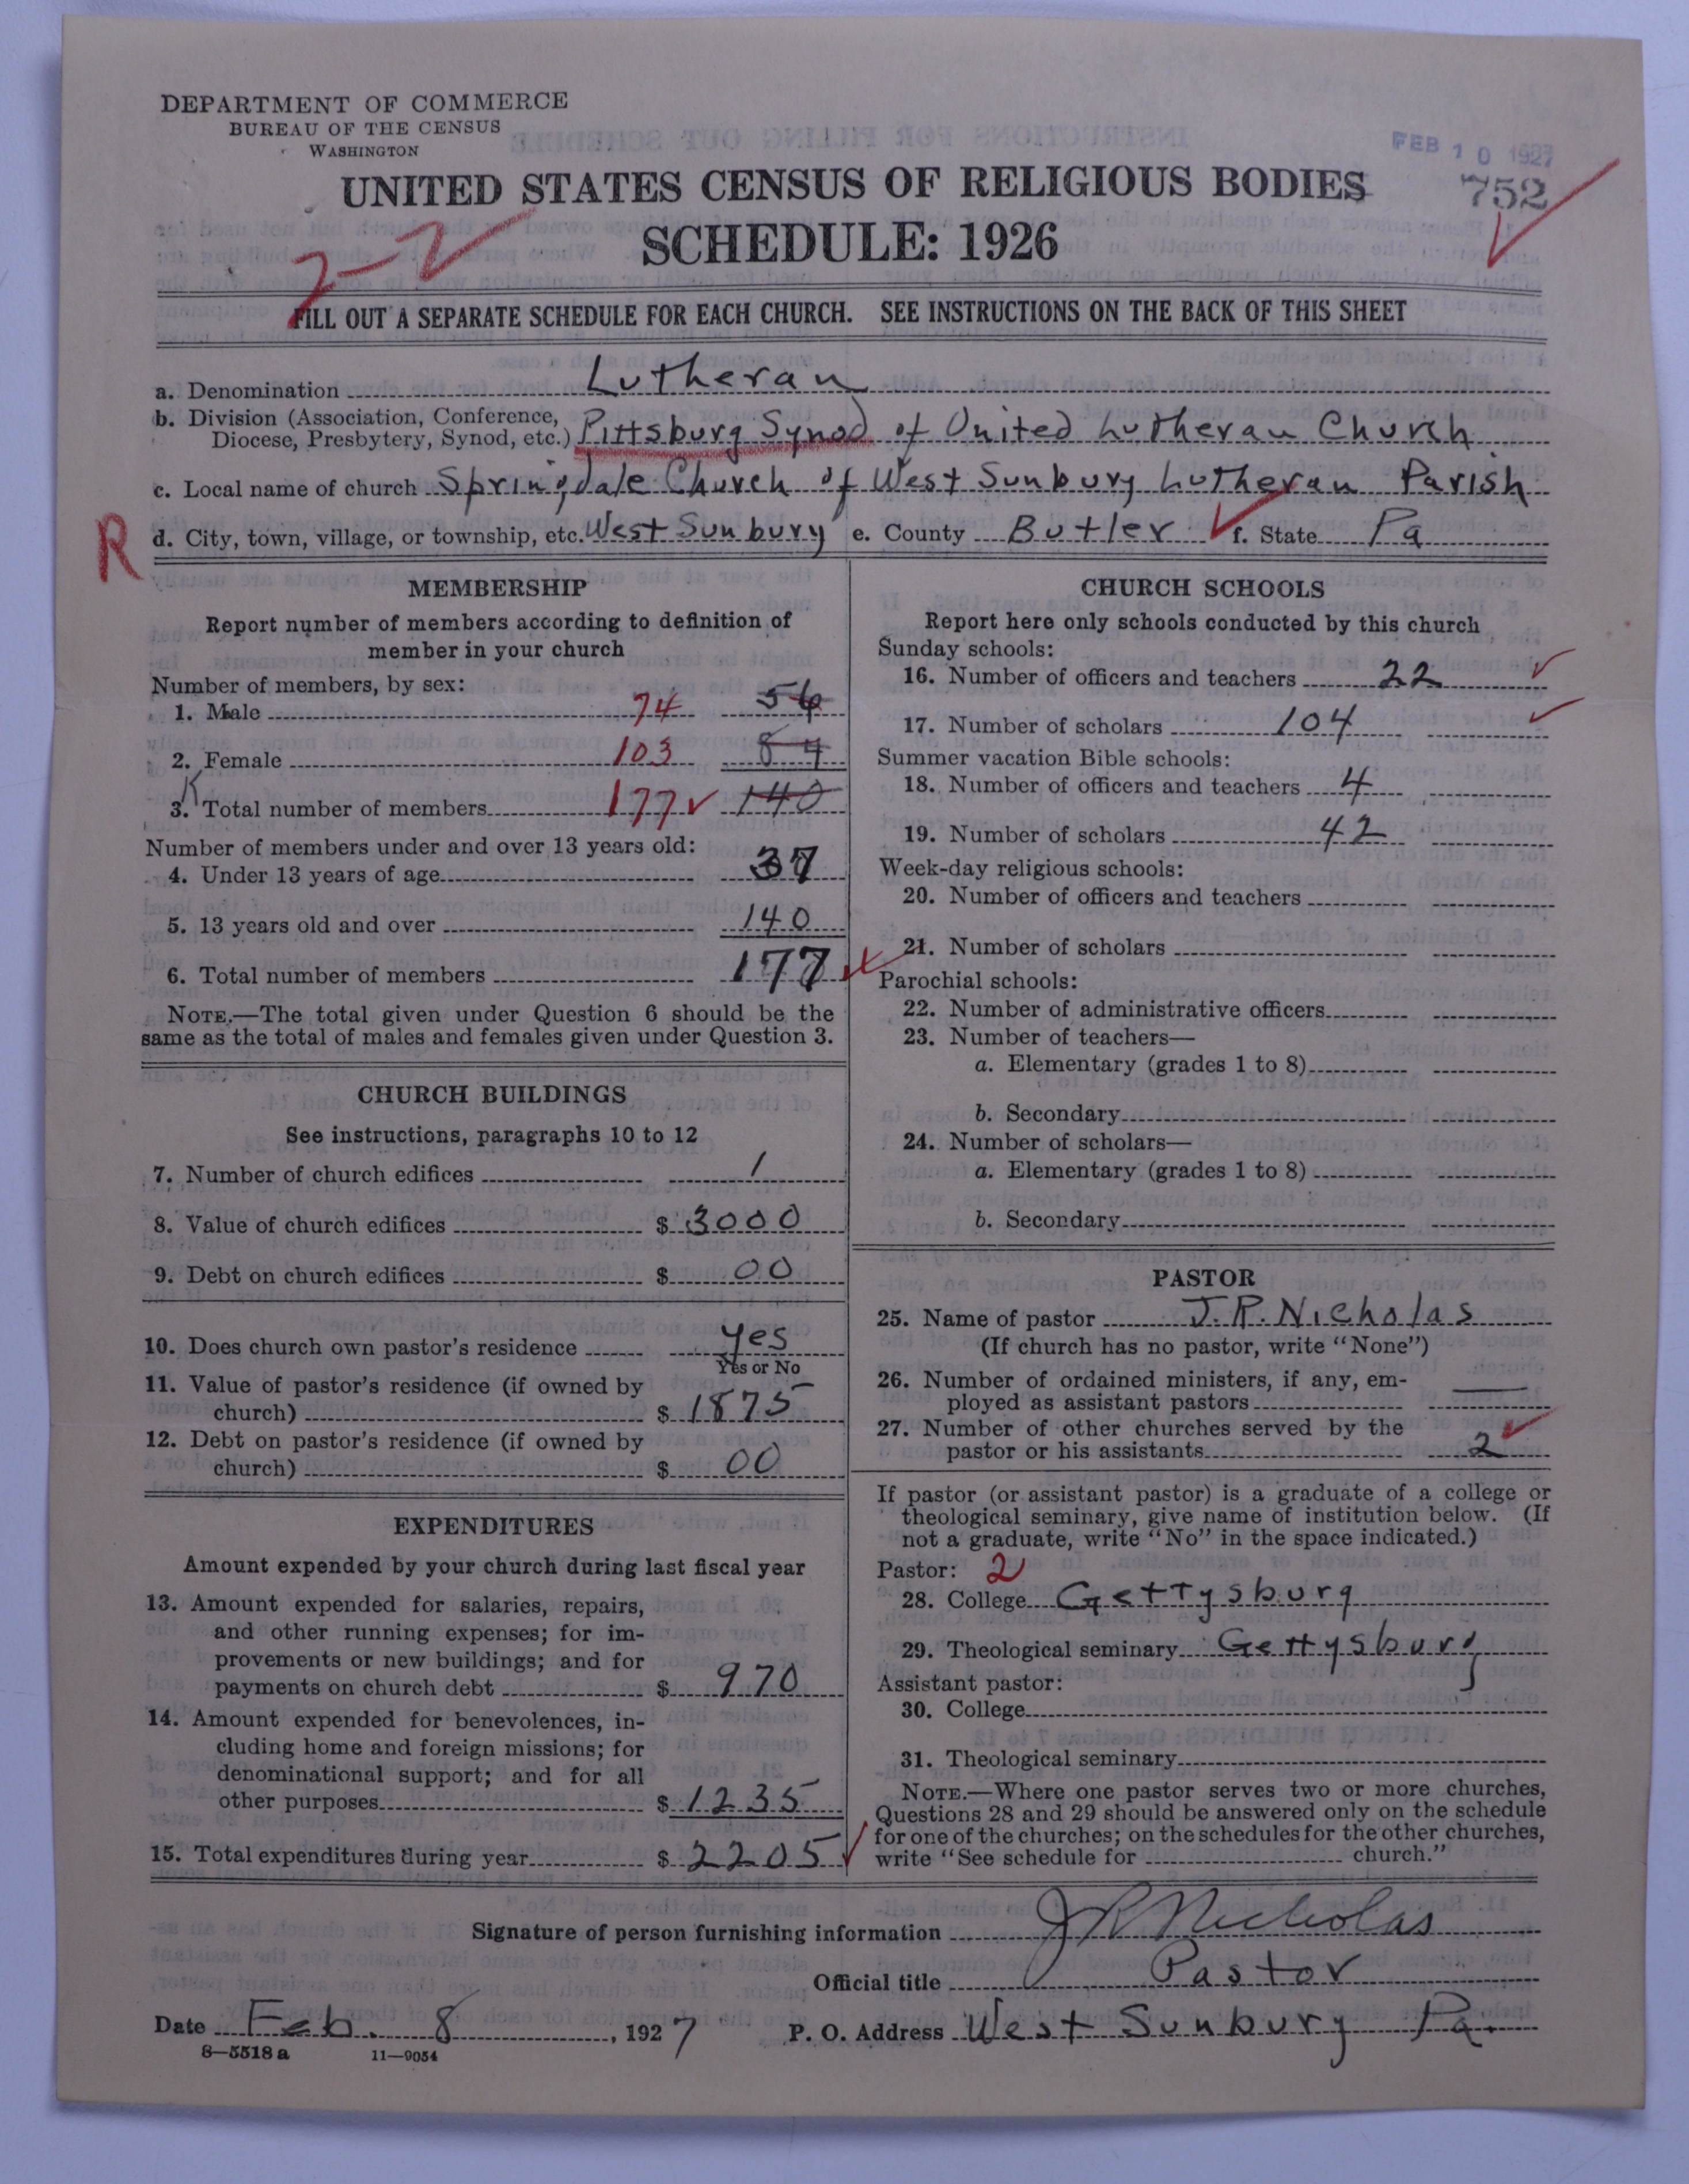 DEPARTMENT OF COMMERCE
BUREAU OF THE CENSUS
WASHINGTON
FEB 10 1927
752
UNITED STATES CENSUS OF RELIGIOUS BODIES
SCHEDULE: 1926
2-2
FILL OUT A SEPARATE SCHEDULE FOR EACH CHURCH. SEE INSTRUCTIONS ON THE BACK OF THIS SHEET
a. Denomination Lutheran
b. Division (Association, Conference,
Diocese, Presbytery, Synod, etc.) Pittsburg Synod of United Lutheran Church
c. Local name of church Springdale Church of West Sunbury Lutheran Parish
R
d. City, town, village, or township, etc. West Sunbury e. County Butler f. State Pa
MEMBERSHIP
Report number of members according to definition of
member in your church
Number of members, by sex:
1. Male 74 56
2. Female 103 84
3. Total number of members 177 140
Number of members under and over 13 years old:
4. Under 13 years of age 37
5. 13 years old and over 140
6. Total number of members 177
NOTE.—The total given under Question 6 should be the
same as the total of males and females given under Question 3.
CHURCH BUILDINGS
See instructions, paragraphs 10 to 12
7. Number of church edifices 1
8. Value of church edifices $ 3000
9. Debt on church edifices $ 00
10. Does church own pastor's residence yes
Yes or No
11. Value of pastor's residence (if owned by
church) $ 1875
12. Debt on pastor's residence (if owned by
church) $ 00
EXPENDITURES
Amount expended by your church during last fiscal year
13. Amount expended for salaries, repairs,
and other running expenses; for im-
provements or new buildings; and for
payments on church debt $ 970
14. Amount expended for benevolences, in-
cluding home and foreign missions; for
denominational support; and for all
other purposes $ 1235
15. Total expenditures during year $ 2205
CHURCH SCHOOLS
Report here only schools conducted by this church
Sunday schools:
16. Number of officers and teachers 22
17. Number of scholars 104
Summer vacation Bible schools:
18. Number of officers and teachers 4
19. Number of scholars 42
Week-day religious schools:
20. Number of officers and teachers
21. Number of scholars
Parochial schools:
22. Number of administrative officers
23. Number of teachers—
a. Elementary (grades 1 to 8)
b. Secondary
24. Number of scholars—
a. Elementary (grades 1 to 8)
b. Secondary
PASTOR
25. Name of pastor J. R. Nicholas
(If church has no pastor, write "None")
26. Number of ordained ministers, if any, em-
ployed as assistant pastors —
27. Number of other churches served by the
pastor or his assistants 2
If pastor (or assistant pastor) is a graduate of a college or
theological seminary, give name of institution below. (If
not a graduate, write "No" in the space indicated.)
Pastor: 2
28. College Gettysburg
29. Theological seminary Gettysburg
Assistant pastor:
30. College
31. Theological seminary
NOTE.—Where one pastor serves two or more churches,
Questions 28 and 29 should be answered only on the schedule
for one of the churches; on the schedules for the other churches,
write "See schedule for church."
Signature of person furnishing information J R Nicholas
Official title Pastor
Date Feb. 8, 1927 P. O. Address West Sunbury Pa.
8-5518a 11-9054